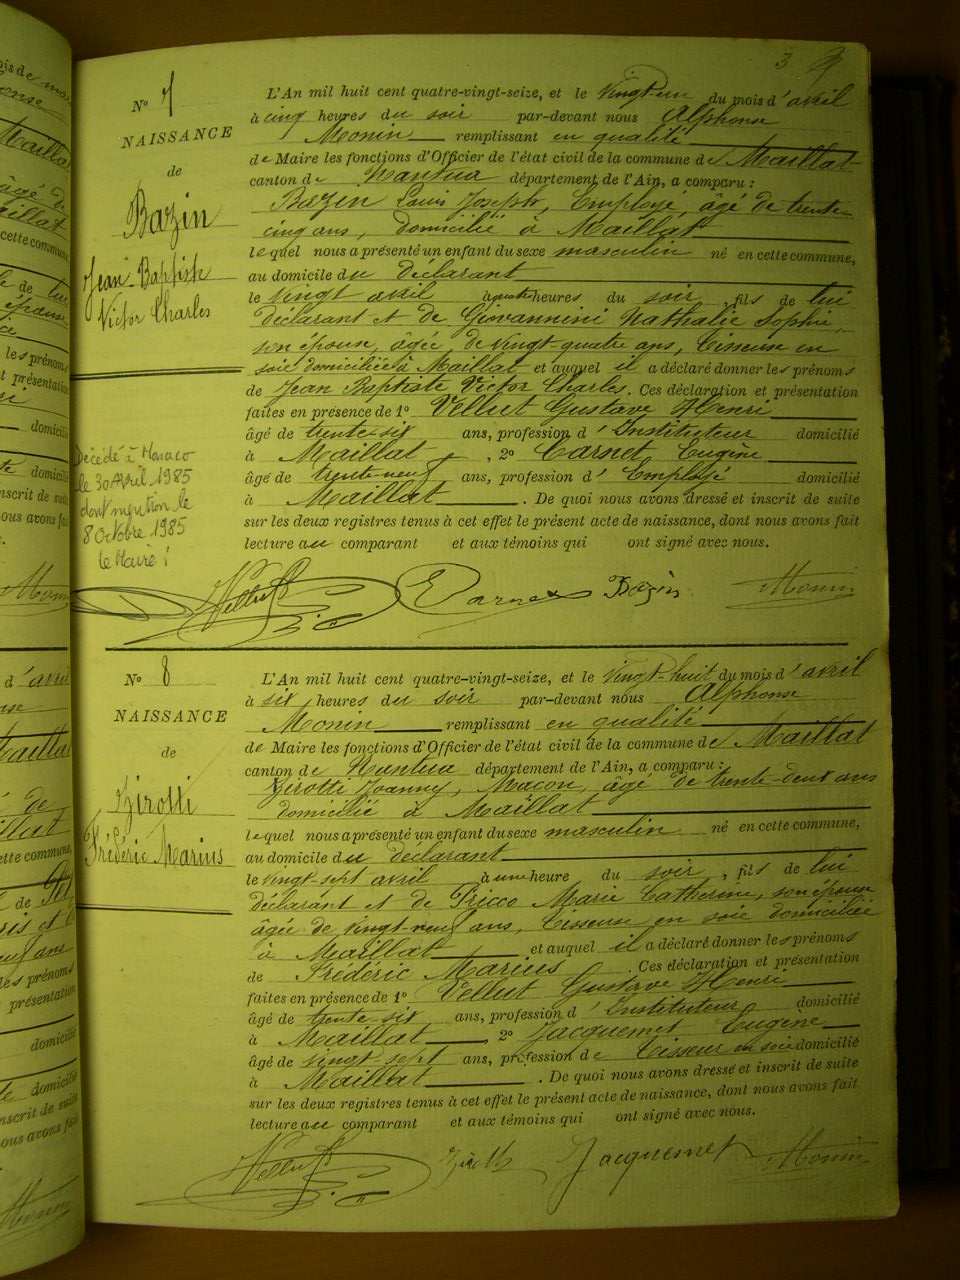 3
N° 7
NAISSANCE
de
Bazin
Jean-Baptiste
Victor Charles
Décédé à Monaco
le 30 Avril 1985
dont mention le
8 Octobre 1985
le Maire :
L'An mil huit cent quatre-vingt-seize, et le vingt-un du mois d'avril
à cinq heures du soir par-devant nous Alphonse
Monin remplissant en qualité
de Maire les fonctions d'Officier de l'état civil de la commune de Maillat
canton de Nantua département de l'Ain, a comparu :
Bazin Louis Joseph, Employé, âgé de trente-
cinq ans, domicilié à Maillat
lequel nous a présenté un enfant du sexe masculin né en cette commune,
au domicile du déclarant
le vingt avril à quatre heures du soir, fils de lui
déclarant et de Giovannini Nathalie Sophie,
son épouse, âgée de vingt quatre ans, Tisseuse en
soie domiciliée à Maillat et auquel il a déclaré donner les prénoms
de Jean Baptiste Victor Charles. Ces déclaration et présentation
faites en présence de 1° Vellut Gustave Henri
âgé de trente-six ans, profession d'Instituteur domicilié
à Maillat, 2° Carnet Eugène
âgé de trente-neuf ans, profession d'Employé domicilié
à Maillat. De quoi nous avons dressé et inscrit de suite
sur les deux registres tenus à cet effet le présent acte de naissance, dont nous avons fait
lecture au comparant et aux témoins qui ont signé avec nous.
Vellut Carnet Bazin Monin
N° 8
NAISSANCE
de
Zirotti
Frédéric Marius
L'An mil huit cent quatre-vingt-seize, et le vingt-huit du mois d'avril
à six heures du soir par-devant nous Alphonse
Monin remplissant en qualité
de Maire les fonctions d'Officier de l'état civil de la commune de Maillat
canton de Nantua département de l'Ain, a comparu :
Zirotti Joanny, Maçon, âgé de trente-deux ans
domicilié à Maillat
lequel nous a présenté un enfant du sexe masculin né en cette commune,
au domicile du déclarant
le vingt-sept avril à une heure du soir, fils de lui
déclarant et de Pricco Marie Catherine, son épouse
âgée de vingt-neuf ans, Tisseuse en soie domiciliée
à Maillat et auquel il a déclaré donner les prénoms
de Frédéric Marius. Ces déclaration et présentation
faites en présence de 1° Vellut Gustave Henri
âgé de trente six ans, profession d'Instituteur domicilié
à Maillat, 2° Jacquemet Eugène
âgé de vingt sept ans, profession de Tisseur en soie domicilié
à Maillat. De quoi nous avons dressé et inscrit de suite
sur les deux registres tenus à cet effet le présent acte de naissance, dont nous avons fait
lecture au comparant et aux témoins qui ont signé avec nous.
Vellut Jacquemet Monin